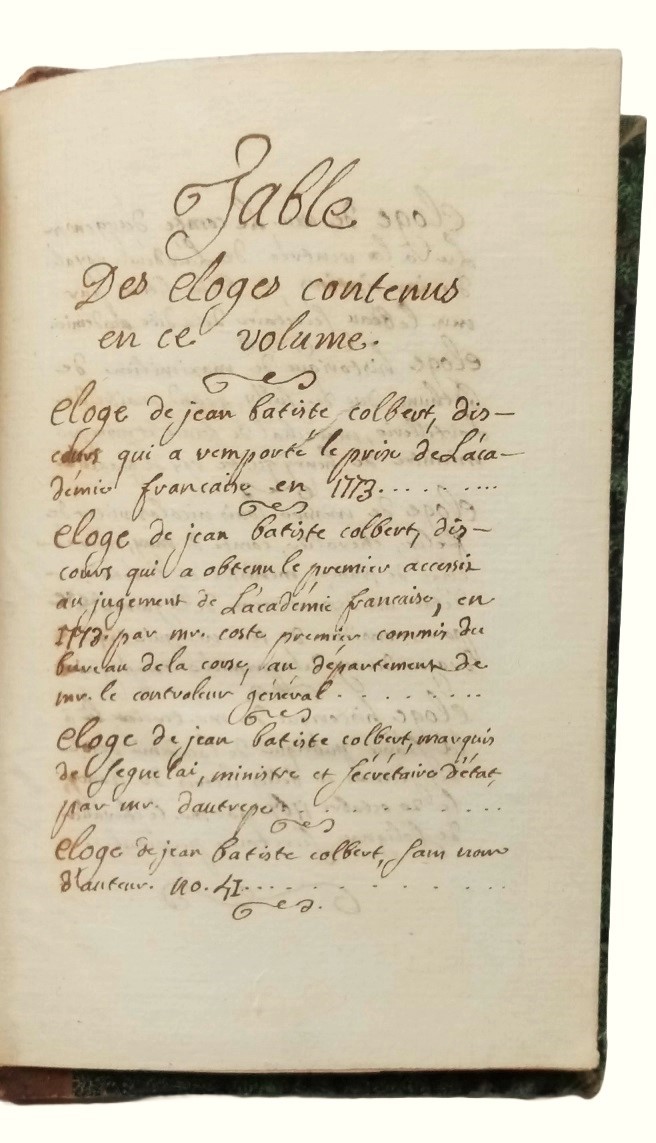 Table
Des eloges contenus
en ce volume.
eloge de jean batiste colbert, dis-
cours qui a remporté le prix de L'aca-
démie francaise en 1773. . . . . . . .
eloge de jean batiste colbert, dis-
cours qui a obtenu le premier accessit
au jugement de L'académie francaise, en
1773. par mr. coste premier commis du
bureau de la corse, au département de
mr. le controleur général . . . . . . . .
eloge de jean batiste colbert, marquis
de segnelai, ministre et sécrétaire d'état,
par mr. dautrepe . . . . . . . . .
eloge de jean batiste colbert, sans nom
d'auteur. no. 41. . . . . . . . . . .